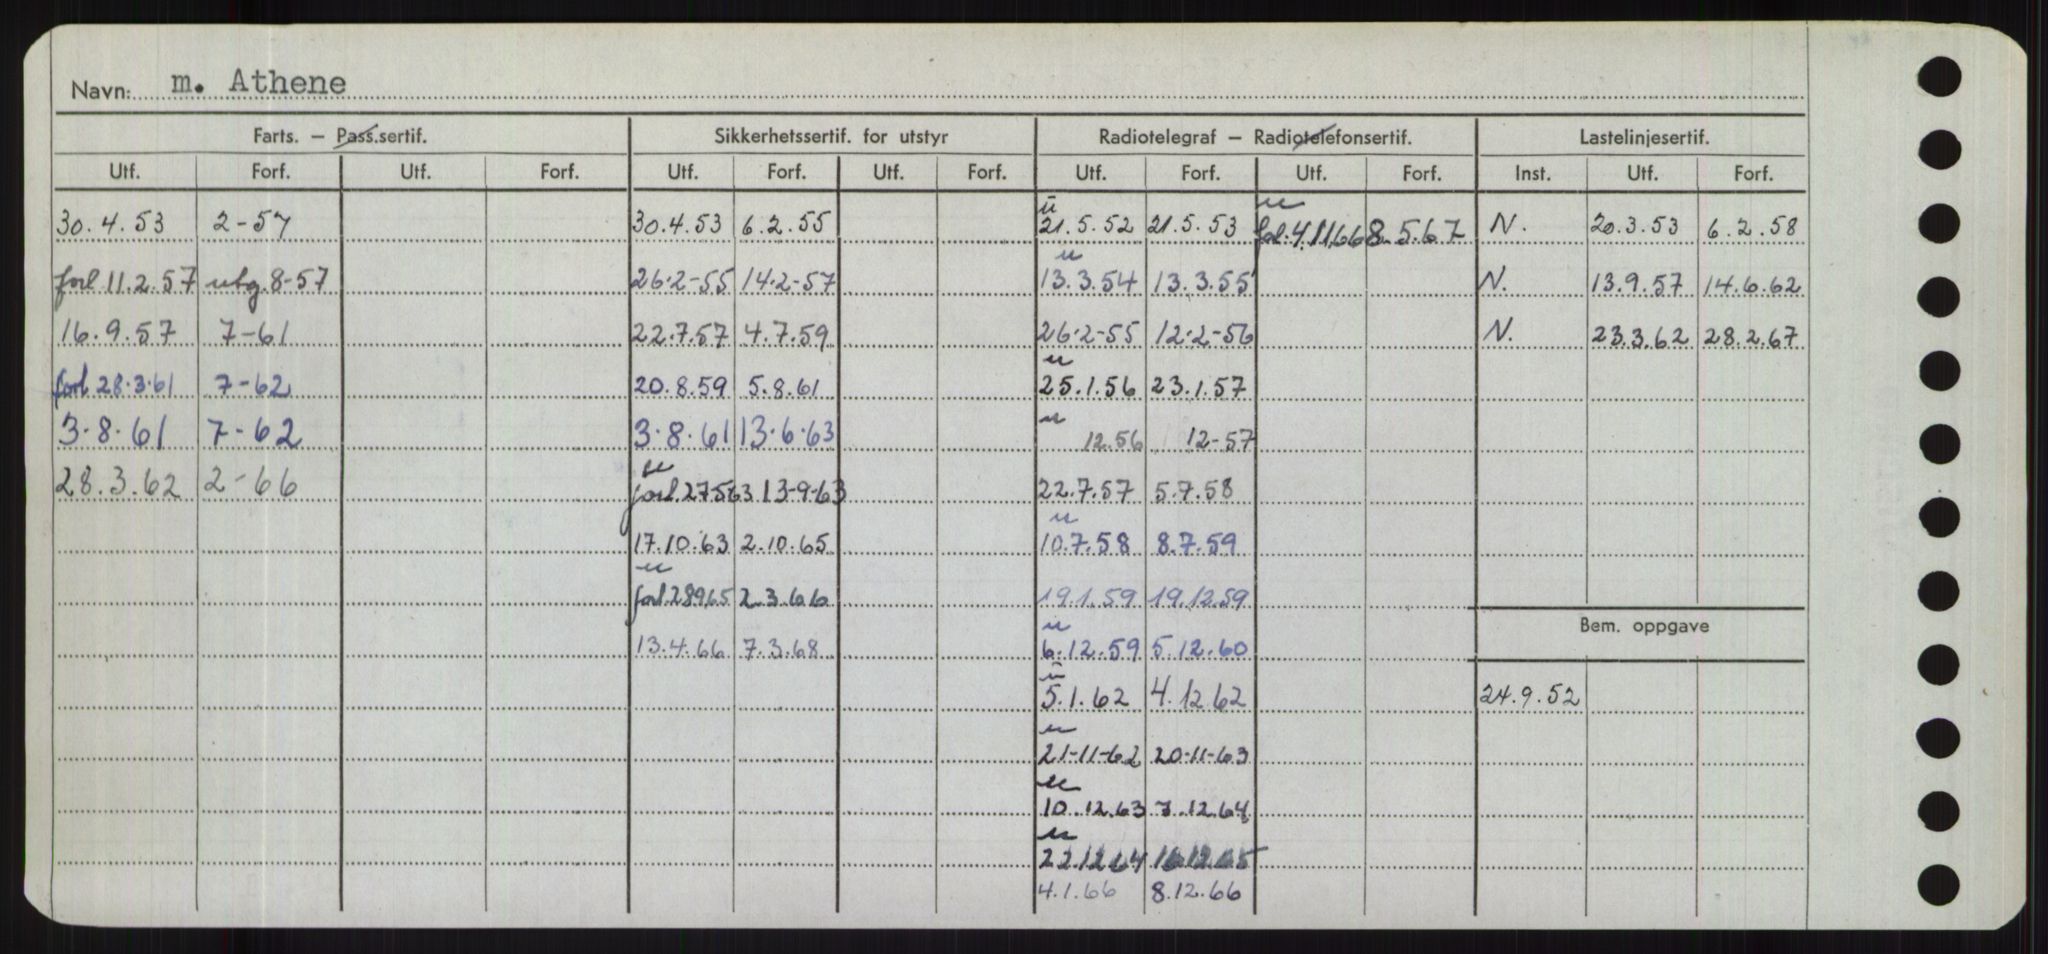 Navn: m. Athene
Farts. — Pass.sertif. Sikkerhetssertif. for utstyr Radiotelegraf — Radiotelefonsertif. Lastelinjesertif.
Utf. Forf. Utf. Forf. Utf. Forf. Utf. Forf. Utf. Forf. Utf. Forf. Inst. Utf. Forf.
u u
30.4.53 2-57 30.4.53 6.2.55 21.5.52 21.5.53 forl.4.11.66 8.5.67 N. 20.3.53 6.2.58
u
forl 11.2.57 utg. 8-57 26.2-55 14.2-57 13.3.54 13.3.55 N. 13.9.57 14.6.62
16.9.57 7-61 22.7.57 4.7.59 26.2-55 12.2-56 N. 23.3.62 28.2.67
u
forl 28.3.61 7-62 20.8.59 5.8.61 25.1.56 23.1.57
u
3.8.61 7-62 3.8.61 13.6.63 12.56 12-57
u
28.3.62 2-66 forl.27563 13-9-63 22.7.57 5.7.58
u
17.10.63 2.10.65 10.7.58 8.7.59
u
forl.28965 2.3.66 19.1.59 19.12.59
u
13.4.66 7.3.68 6.12.59 5.12.60
Bem. oppgave
u
5.1.62 4.12.62 24.9.52
u
21-11-62 20-11-63
u
10.12.63 7.12.64
u
22.12.64 16.12.65
4.1.66 8.12.66